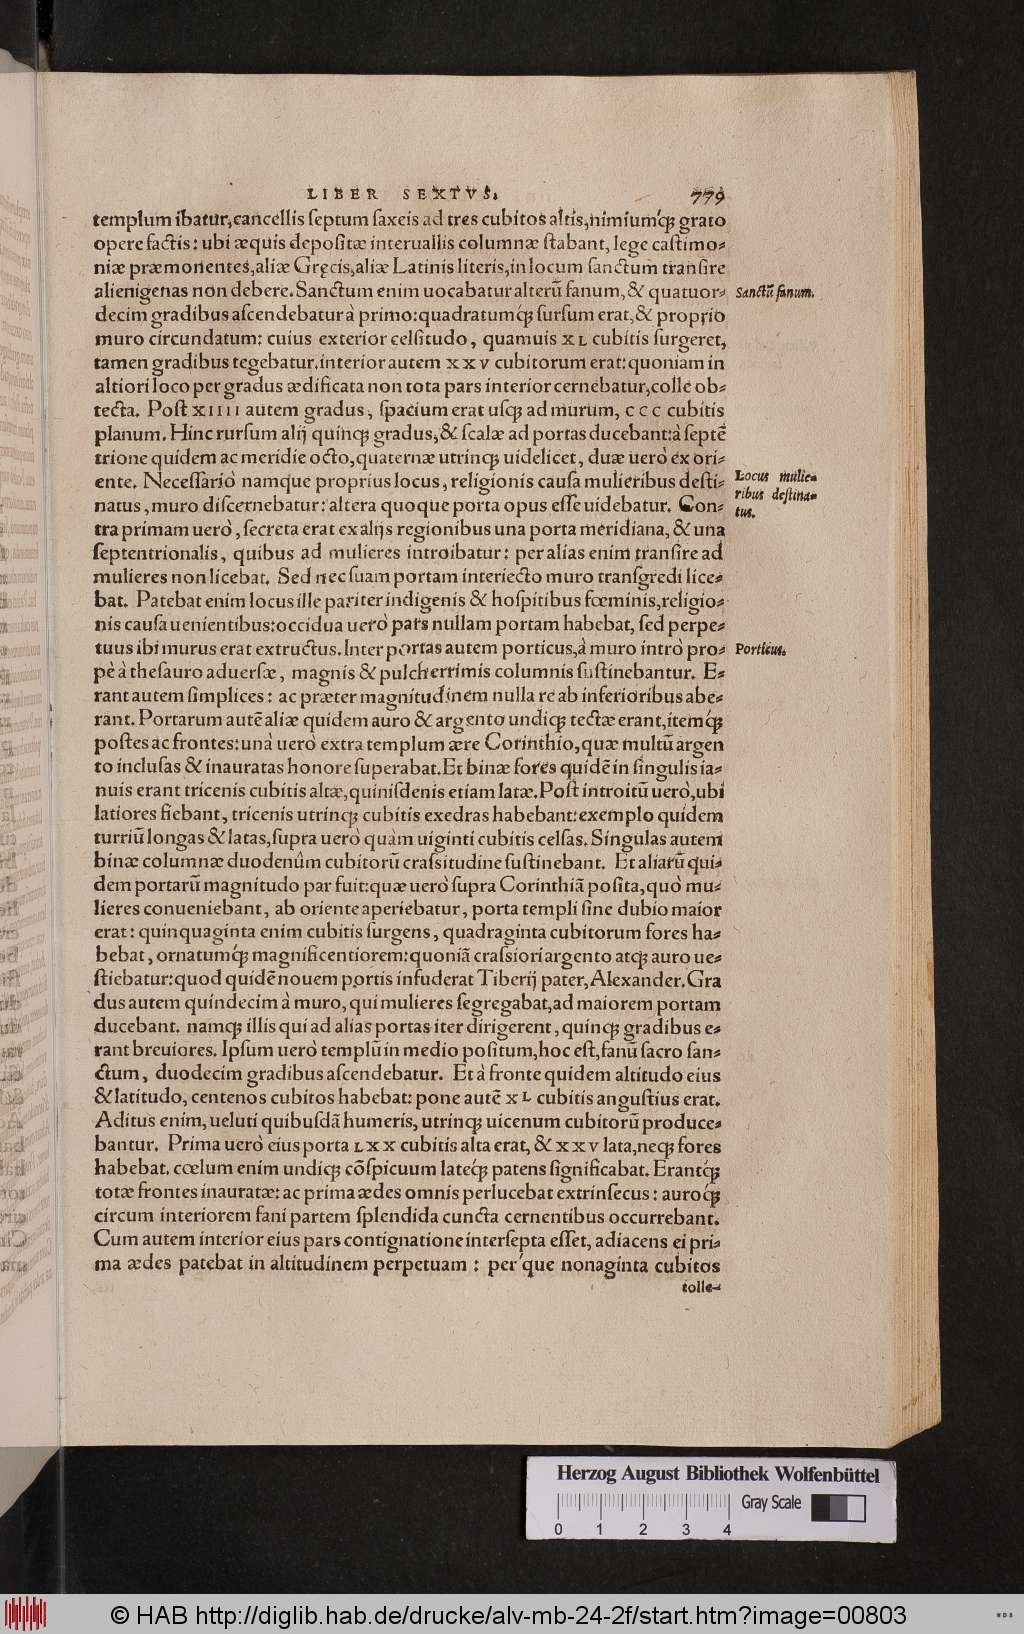 LIBER SEXTVS. 779
templum ibatur, cancellis ſeptum ſaxeis ad tres cubitos altis, nimiumq́ꝫ grato
opere factis: ubi æquis depoſitæ interuallis columnæ ſtabant, lege caſtimo-
niæ præmonentes, aliæ Gręcis, aliæ Latinis literis, in locum ſanctum tranſire
alienigenas non debere. Sanctum enim uocabatur alterū fanum, & quatuor-
Sanctū fanum.
decim gradibus aſcendebatur à primo: quadratumq́ꝫ ſurſum erat, & proprio
muro circundatum: cuius exterior celſitudo, quamuis XL cubitis ſurgeret,
tamen gradibus tegebatur. interior autem XXV cubitorum erat: quoniam in
altiori loco per gradus ædificata non tota pars interior cernebatur, colle ob-
tecta. Poſt XIIII autem gradus, ſpacium erat uſqꝫ ad murum, CCC cubitis
planum. Hinc rurſum alij quinqꝫ gradus, & ſcalæ ad portas ducebant: à ſeptē
trione quidem ac meridie octo, quaternæ utrinqꝫ uidelicet, duæ uerò ex ori-
ente. Neceſſariò namque proprius locus, religionis cauſa mulieribus deſti-
Locus mulie-
ribus deſtina-
tus.
natus, muro diſcernebatur: altera quoque porta opus eſſe uidebatur. Con-
tra primam uerò, ſecreta erat ex alijs regionibus una porta meridiana, & una
ſeptentrionalis, quibus ad mulieres introibatur: per alias enim tranſire ad
mulieres non licebat. Sed nec ſuam portam interiecto muro tranſgredi lice-
bat. Patebat enim locus ille pariter indigenis & hoſpitibus fœminis, religio-
nis cauſa uenientibus: occidua uerò pars nullam portam habebat, ſed perpe-
tuus ibi murus erat extructus. Inter portas autem porticus, à muro intrò pro-
Porticus.
pè à theſauro aduerſæ, magnis & pulcherrimis columnis ſuſtinebantur. E-
rant autem ſimplices: ac præter magnitudinem nulla re ab inferioribus abe-
rant. Portarum autē aliæ quidem auro & argento undiqꝫ tectæ erant, itemq́ꝫ
poſtes ac frontes: unà uerò extra templum ære Corinthio, quæ multū argen
to incluſas & inauratas honore ſuperabat. Et binæ fores quidē in ſingulis ia-
nuis erant tricenis cubitis altæ, quiniſdenis etiam latæ. Poſt introitū uerò, ubi
latiores fiebant, tricenis utrinqꝫ cubitis exedras habebant: exemplo quidem
turriū longas & latas, ſupra uerò quàm uiginti cubitis celſas. Singulas autem
binæ columnæ duodenûm cubitorū craſsitudine ſuſtinebant. Et aliarū qui-
dem portarū magnitudo par fuit: quæ uerò ſupra Corinthiā poſita, quò mu-
lieres conueniebant, ab oriente aperiebatur, porta templi ſine dubio maior
erat: quinquaginta enim cubitis ſurgens, quadraginta cubitorum fores ha-
bebat, ornatumq́ꝫ magnificentiorem: quoniā craſsiori argento atqꝫ auro ue-
ſtiebatur: quod quidē nouem portis infuderat Tiberij pater, Alexander. Gra
dus autem quindecim à muro, qui mulieres ſegregabat, ad maiorem portam
ducebant. namqꝫ illis qui ad alias portas iter dirigerent, quinqꝫ gradibus e-
rant breuiores. Ipſum uerò templū in medio poſitum, hoc eſt, fanū ſacro ſan-
ctum, duodecim gradibus aſcendebatur. Et à fronte quidem altitudo eius
& latitudo, centenos cubitos habebat: pone autē XL cubitis anguſtius erat.
Aditus enim, ueluti quibuſdā humeris, utrinqꝫ uicenum cubitorū produce-
bantur. Prima uerò eius porta LXX cubitis alta erat, & XXV lata, neqꝫ fores
habebat. cœlum enim undiqꝫ cōſpicuum lateq́ꝫ patens ſignificabat. Erantq́ꝫ
totæ frontes inauratæ: ac prima ædes omnis perlucebat extrinſecus: auroq́ꝫ
circum interiorem fani partem ſplendida cuncta cernentibus occurrebant.
Cum autem interior eius pars contignatione interſepta eſſet, adiacens ei pri-
ma ædes patebat in altitudinem perpetuam: per'que nonaginta cubitos
tolle-
Herzog August Bibliothek Wolfenbüttel
Gray Scale
0 1 2 3 4
© HAB http://diglib.hab.de/drucke/alv-mb-24-2f/start.htm?image=00803